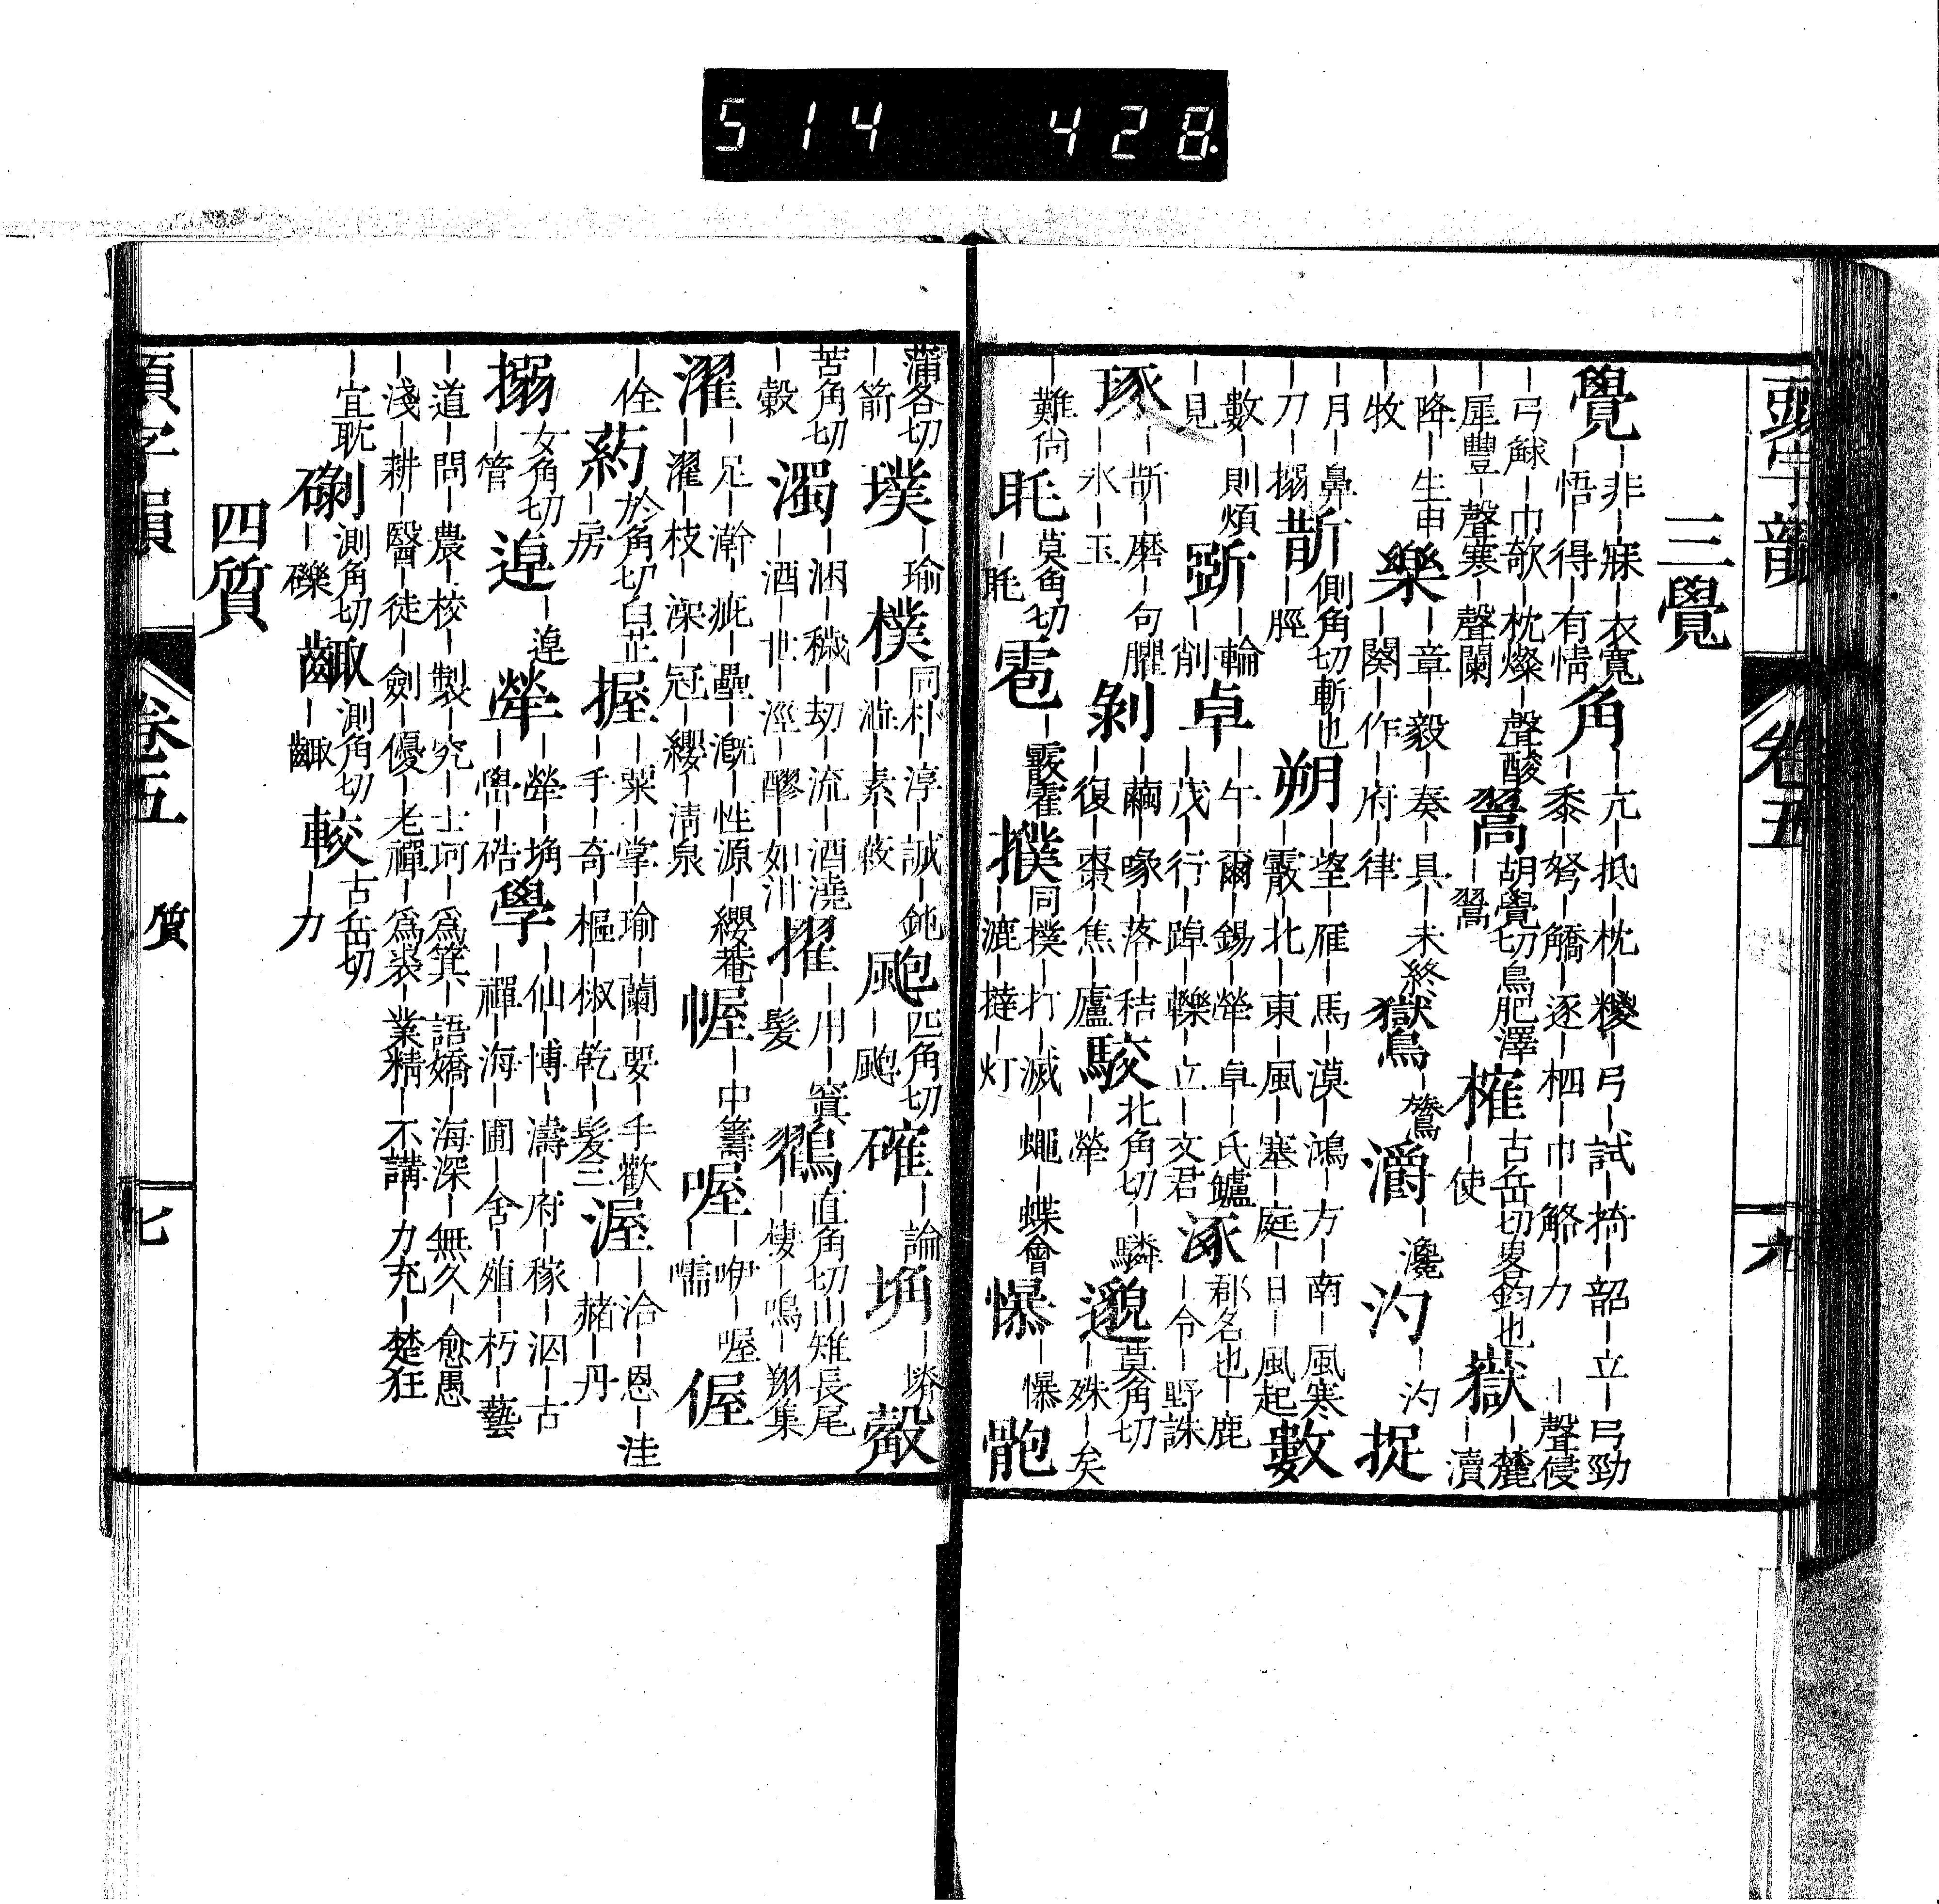 514 428.
頭字韻 卷五 九
三覺
覺 ｜非｜寐｜衣寬 角 ｜亢｜抵｜枕｜稜｜弓｜試｜掎｜韶｜立｜弓勁
｜悟｜得｜有情 ｜黍｜弩｜觿｜逐｜枴｜巾｜觡｜力｜聲侵
｜弓觩｜巾欹｜枕燦｜聲酸 鷽 胡覺切鳥肥澤 榷 古岳切畧釣也 嶽｜麓
犀豐｜聲寒｜聲闌 ｜鷽 ｜使 ｜瀆
｜降｜生申 樂 ｜章｜毅｜奏｜具｜未終 鸑 ｜鷟 灂 ｜瀺 汋 ｜汋 捉
｜牧 ｜闋｜作｜府｜律
｜月｜鼻 斮 側角切斬也 朔 ｜望｜雁｜馬｜漠｜鴻｜方｜南｜風寒 數
｜刀｜搦 ｜脛 ｜霰｜北｜東｜風｜塞｜庭｜日｜風起
｜數｜則煩 斲 ｜輪 卓 ｜午｜爾｜錫｜犖｜阜｜氏鑪 涿 郡名也｜鹿
｜見 ｜削 ｜茂｜行｜踔｜轢｜立｜文君 ｜令｜野誅
琢 ｜斮｜磨｜句臞 剝 ｜繭｜喙｜落｜秸 駮 北角切｜驎 邈 莫角切
｜氷｜玉 ｜復｜棗｜焦｜廬 ｜犖 ｜殊｜矣
｜難尙 眊 莫角切 雹 ｜霰霍 撲 同樸｜打｜滅｜蠅｜蝶會 懪 ｜懪 骲
｜眊 ｜漉｜撻｜灯
蒲各切 璞 ｜瑜 樸 同朴｜淳｜誠｜鈍 颮 匹角切 確 ｜論 埆 ｜塉 瞉
｜箭 ｜澁｜素｜蔌 ｜颮
苦角切 濁 ｜溷｜穢｜刧｜流｜酒澆 擢 ｜用｜箕 鸐 直角切山雉長尾
｜穀 ｜酒｜世｜涇｜醪｜如泔 ｜髮 ｜棲｜鳴｜翔集
濯 ｜足｜澣｜疵｜罍｜漑｜性源｜纓菴 幄 ｜中籌 喔 ｜咿｜喔 偓
｜濯｜枝｜滜｜冠｜纓｜淸泉 ｜嚅
｜佺 葯 於角切白芷 握 ｜粟｜掌｜瑜｜蘭｜要｜手歡 渥 ｜洽｜恩｜洼
｜房 ｜手｜奇｜樞｜椒｜乾｜髮三 ｜赭｜丹
搦 女角切 逴 ｜逴 犖 ｜犖｜埆 學 ｜仙｜博｜濤｜府｜稼｜泅｜古
｜管 ｜嚳｜硞 ｜禪｜海｜圃｜舍｜殖｜朽｜藝
｜道｜問｜農｜校｜製｜究｜士坷｜爲箕｜語嬌｜海深｜無久｜愈愚
｜淺｜耕｜醫｜徒｜劍｜優｜老禪｜爲裘｜業精｜不講｜力充｜楚狂
｜宜耽 測角切 齱 測角切 較 古岳切
｜礫 ｜齱 ｜力
四質
卷五 質 七